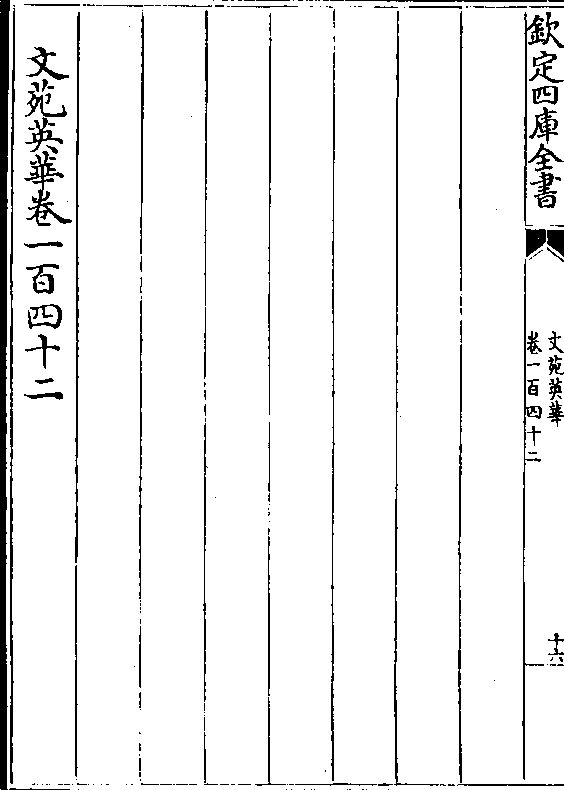 欽定四庫全書
文苑英華
卷一百四十二
十六
文苑英華卷一百四十二